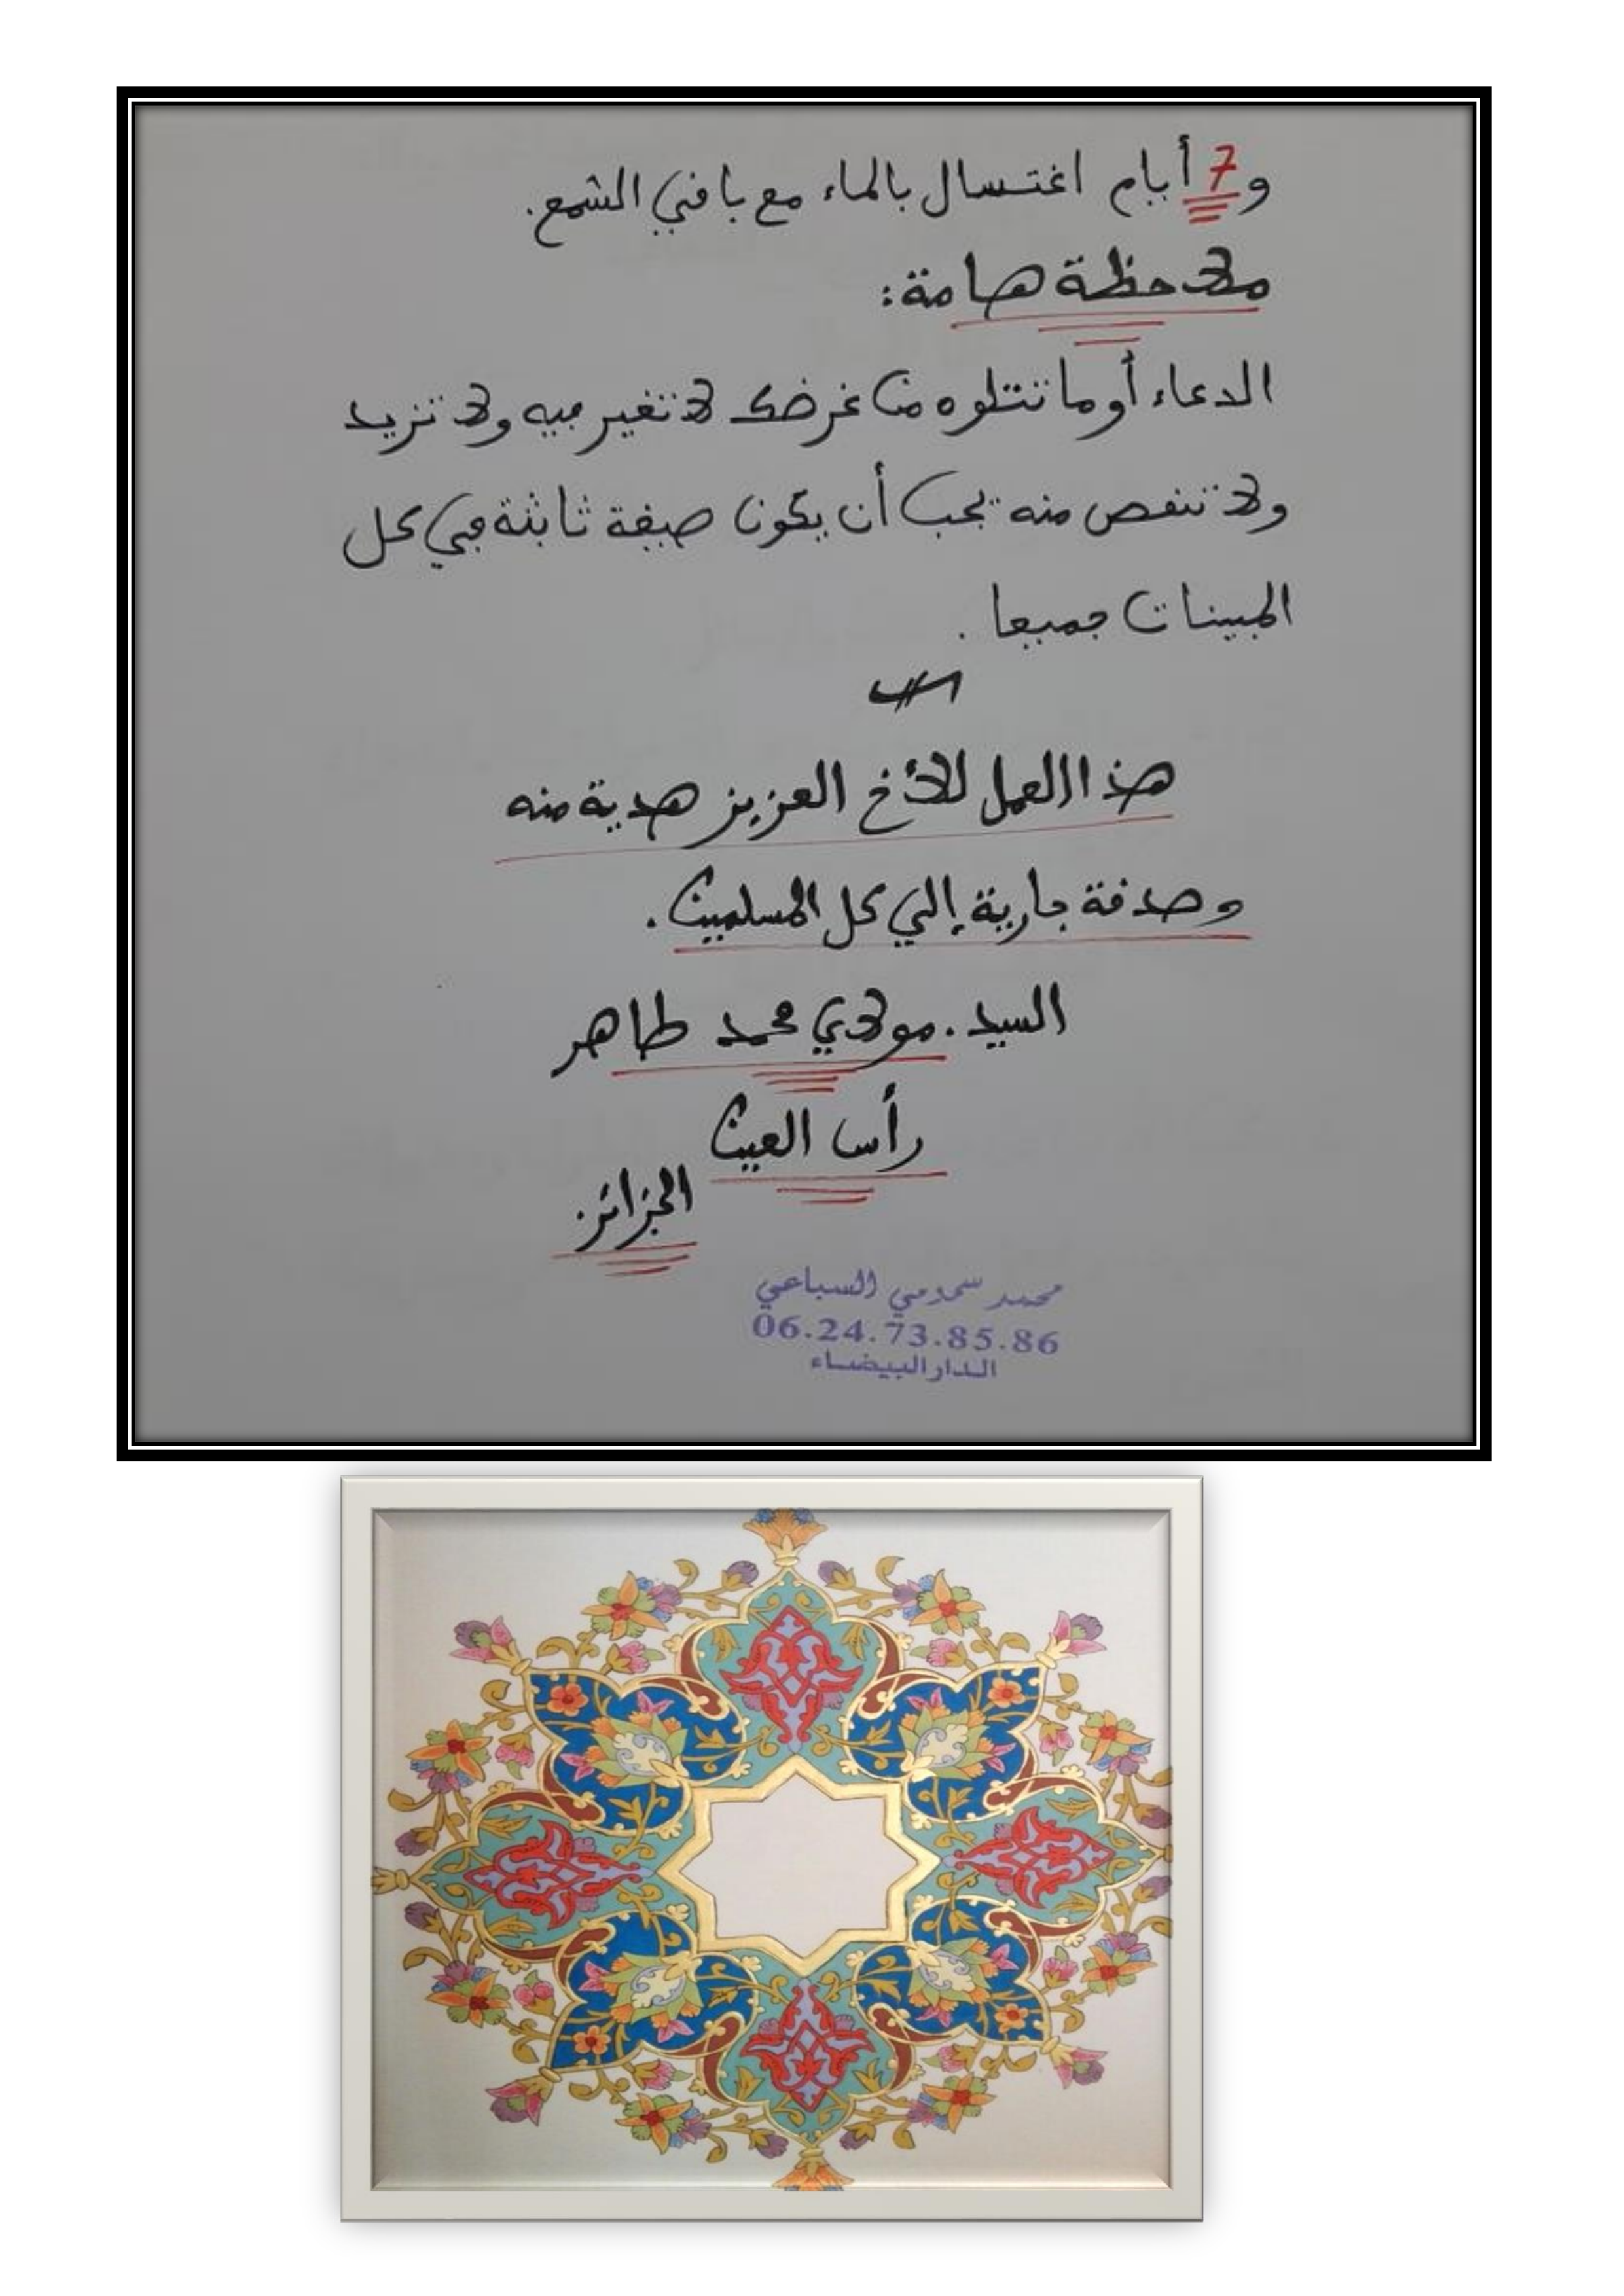 و7 أيام اغتسال بالماء مع باقي الشمع.
ملاحظة هامة:
الدعاء أو ما تتلوه من غرضك لا تغير فيه ولا تزيد
ولا تنقص منه يجب أن يكون صيغة ثابتة في كل
المبينات جميعا.
هذا العمل للأخ العزيز هدية منه
وصدقة جارية إلى كل المسلمين.
السيد. مولاي محمد طاهر
رأس العين
الجزائر.
محمد السباعي
06.24.73.85.86
الدار البيضاء